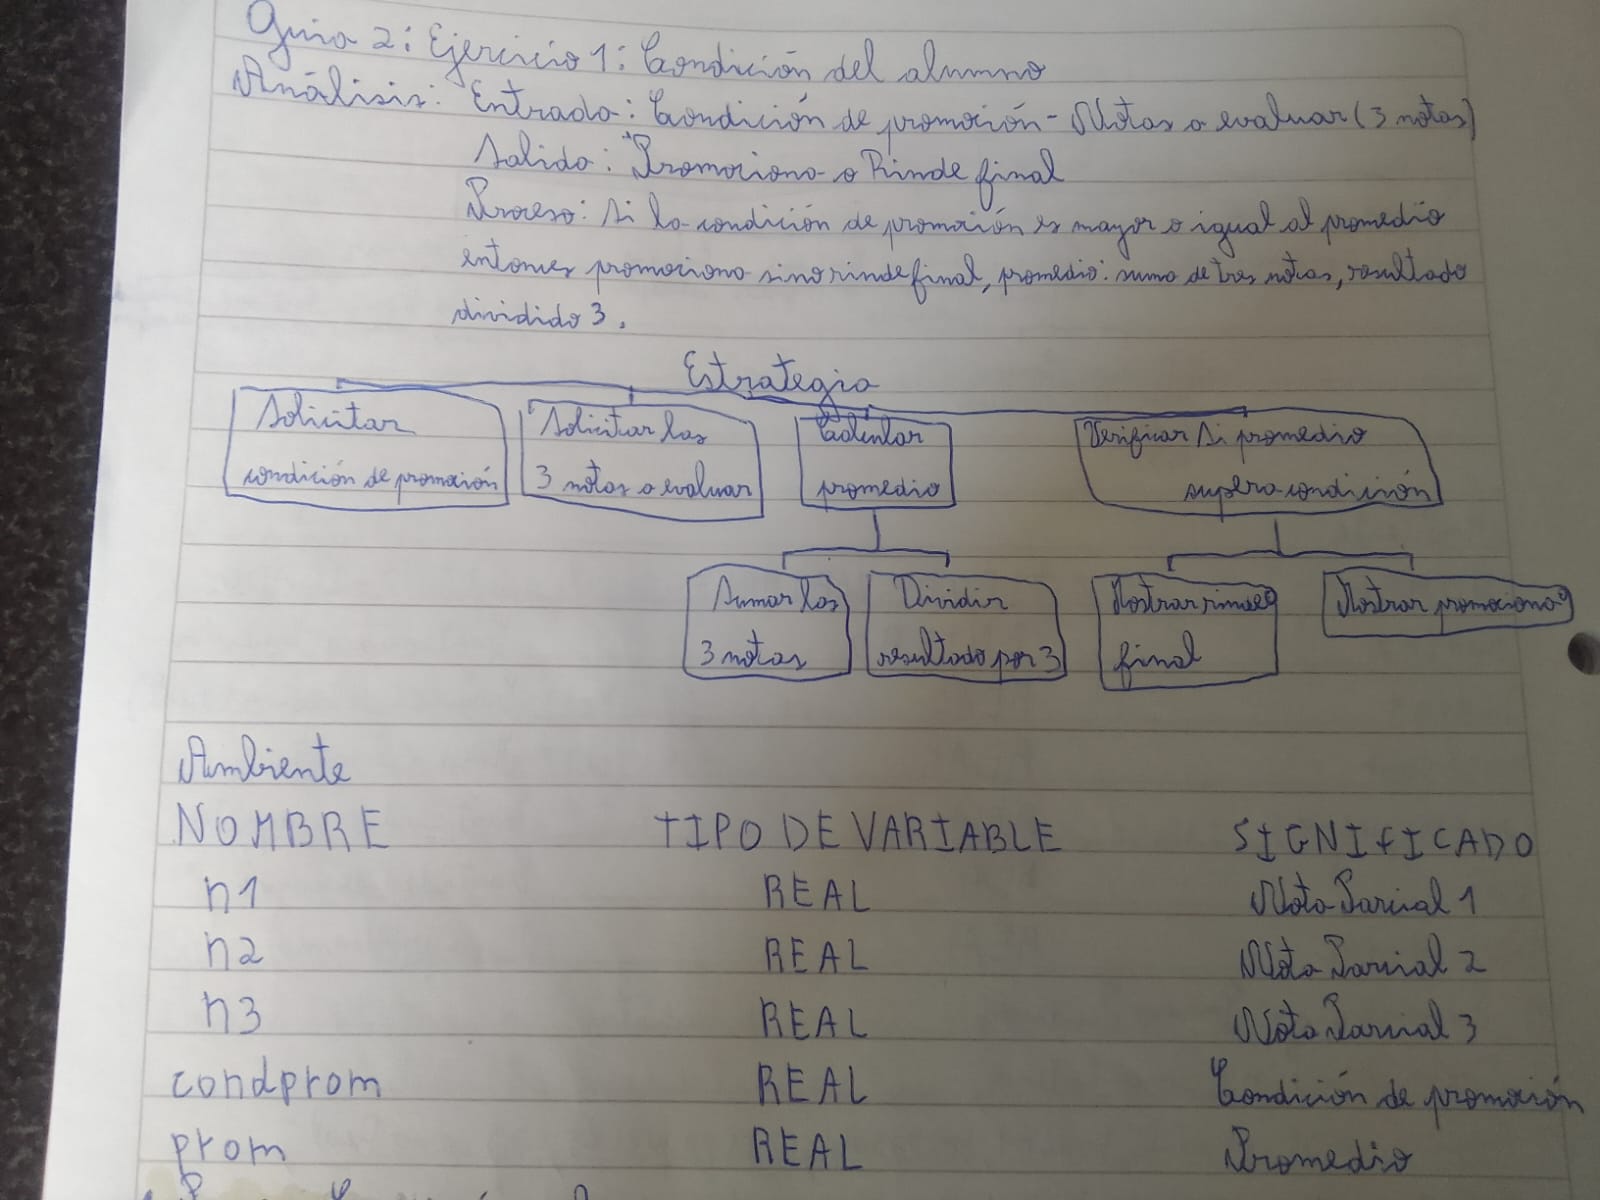 Guia 2: Ejercicio 1: Condición del alumno
Análisis: Entrada: Condición de promoción - Notas a evaluar (3 notas)
Salida: Promociona o Rinde final
Proceso: Si la condición de promoción es mayor o igual al promedio
entonces promociona sino rinde final, promedio: suma de tres notas, resultado
dividido 3.
Estrategia
Solicitar
condición de promoción
Solicitar las
3 notas a evaluar
Calcular
promedio
Verificar si promedio
supera condición
Sumar las
3 notas
Dividir
resultado por 3
Mostrar rinde
final
Mostrar promociona
Ambiente
NOMBRE TIPO DE VARIABLE SIGNIFICADO
n1 REAL Nota Parcial 1
n2 REAL Nota Parcial 2
n3 REAL Nota Parcial 3
condprom REAL Condición de promoción
prom REAL Promedio